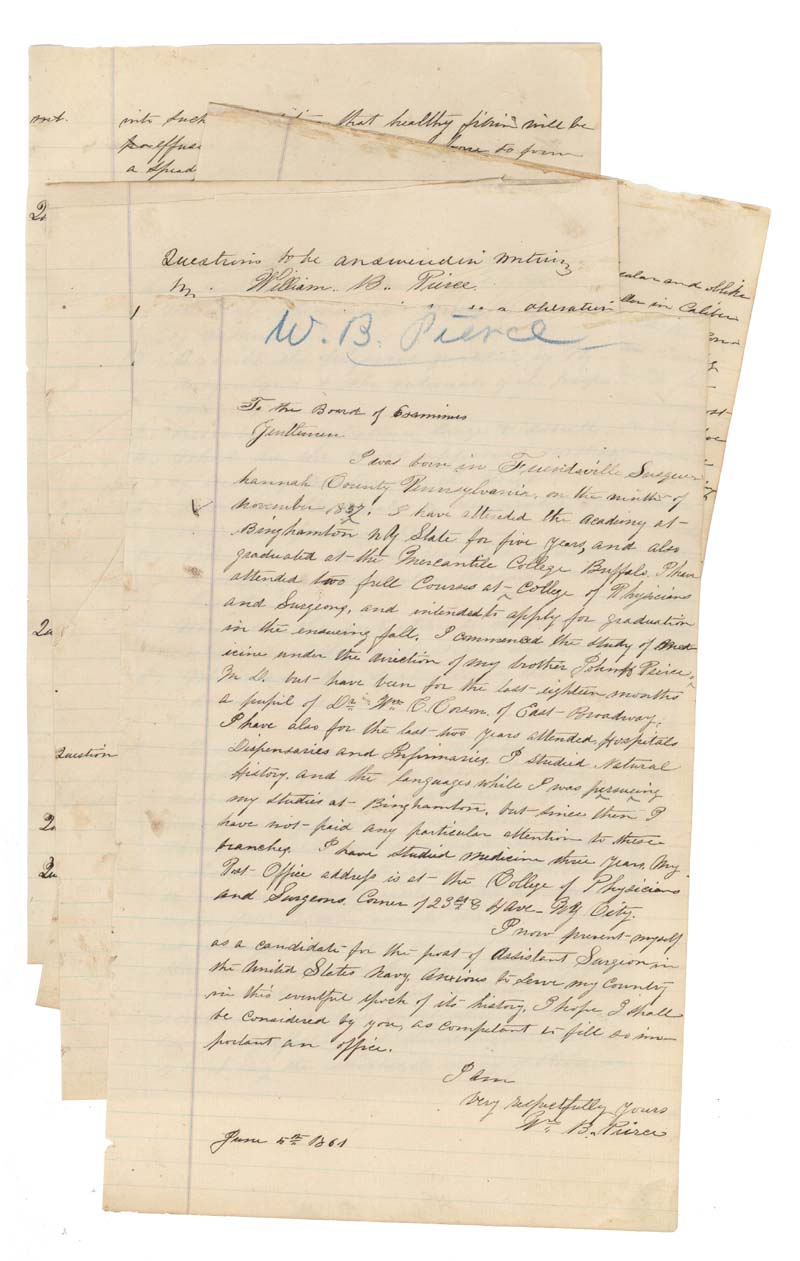 mt.
into such that healthy fibrin will be
effuse to form
a spread
2
Questions to be answered in writing
by William. B. Pierce.
a operation
cular and
ller in Caliber
W. B. Pierce
To the Board of Examiners
Gentlemen
I was born in Friendsville Susque
hannah County Pennsylvania, on the ninth of
November 1837. I have attended the Academy at
Binghamton NY State for five years, and also
graduated at the Mercantile College Buffalo. I have
attended two full Courses at College of Physicians
and Surgeons, and intended to apply for graduation
in the ensueing fall. I commenced the study of Med
icine under the direction of my brother John Peirce,
M. D. but have been for the last eighteen months
a pupil of Dr Wm C. Corson. of East Broadway.
I have also for the last two years attended, Hospitals
Dispensaries and Infirmaries. I studied Natural
History, and the languages while I was persueing
my studies at Binghamton, but since then I
have not paid any particular attention to these
branches. I have studied medicine three years. My
Post Office address is at the College of Physicians
and Surgeons. Corner of 23rd & 4 Ave NY City.
I now present myself
as a candidate for the post of Assistant Surgeon in
the United States Navy. Anxious to serve my Country
in this eventful epoch of its history, I hope I shall
be considered by you, as competant to fill so im-
portant an office.
I am
Very respectfully yours
Wm B. Peirce
June 5th 1861
2
Question
2